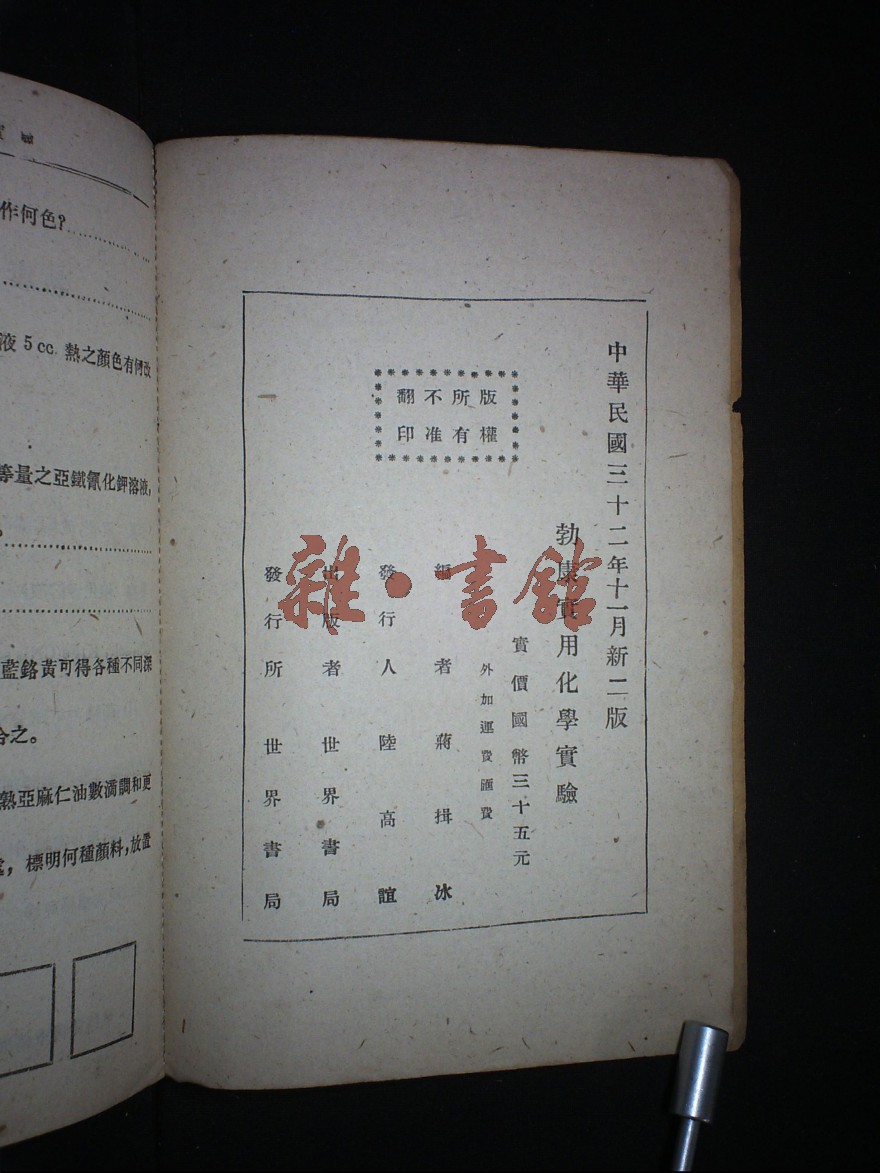 中華民國三十二年十一月新二版
勃康實用化學實驗
實價國幣三十五元
外加運費匯費
版權
所有
不准
翻印
編者蔣揖冰
發行人陸高誼
出版者世界書局
發行所世界書局
雜·書館
作何色?
液 5 cc. 熱之顏色有何改
等量之亞鐵氰化鉀溶液,
藍鉻黃可得各種不同深
合之。
熟亞麻仁油數滴調和更
處, 標明何種顏料,放置